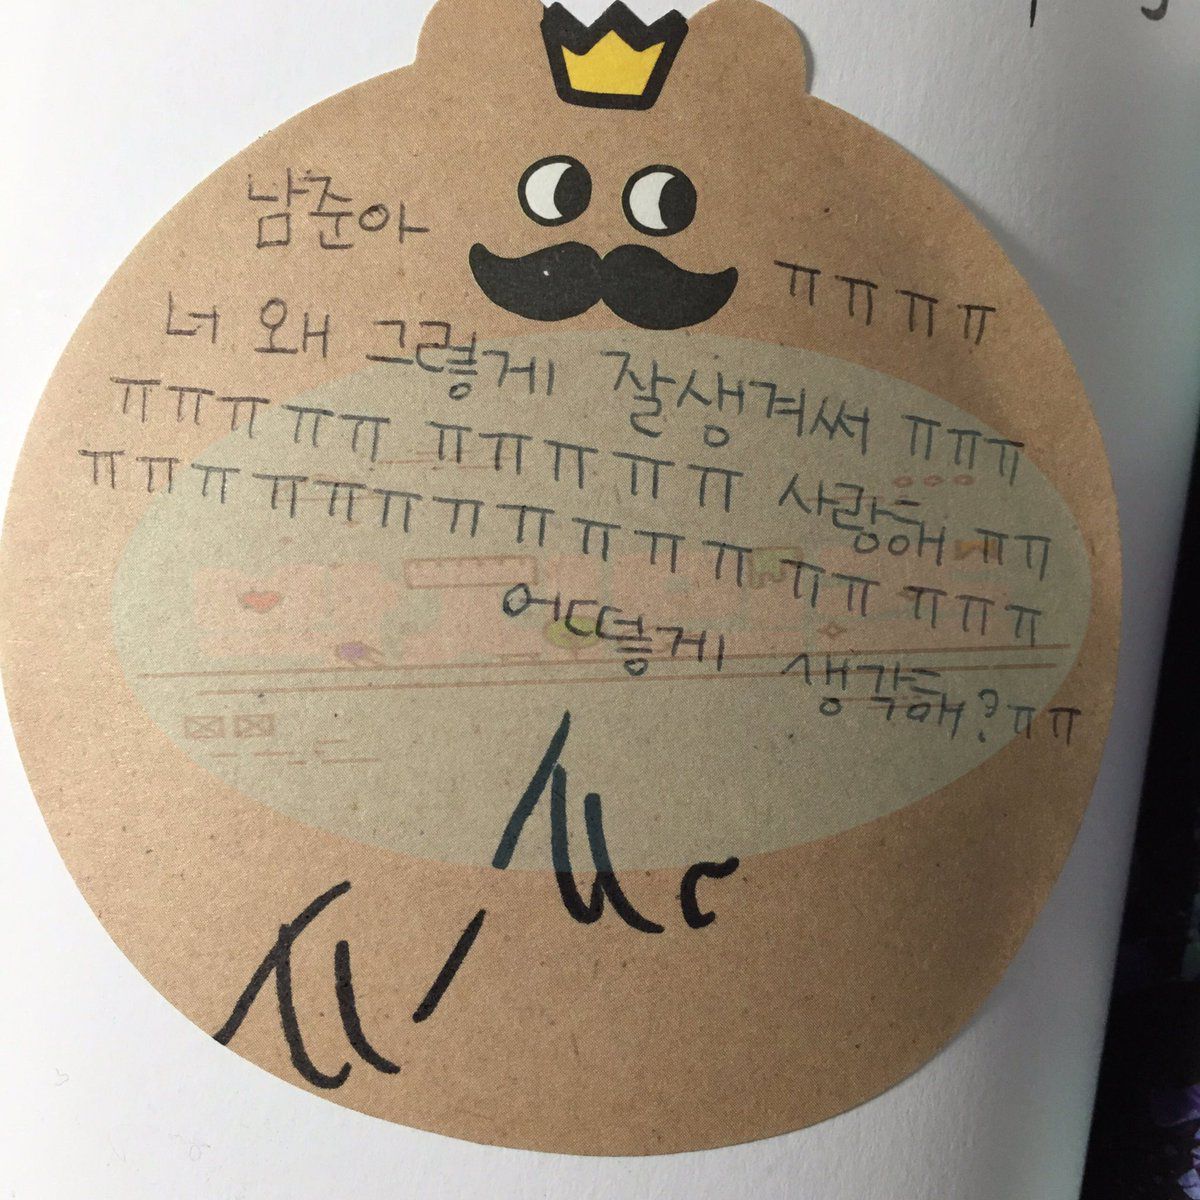 남준아 ㅠㅠㅠㅠ
너 왜 그렇게 잘생겨써 ㅠㅠㅠ
ㅠㅠㅠㅠㅠ ㅠㅠㅠㅠㅠ 사랑해 ㅠㅠ
ㅠㅠㅠ ㅠㅠㅠㅠㅠㅠㅠㅠ ㅠㅠ ㅠㅠㅠ
어떻게 생각해?ㅠㅠ